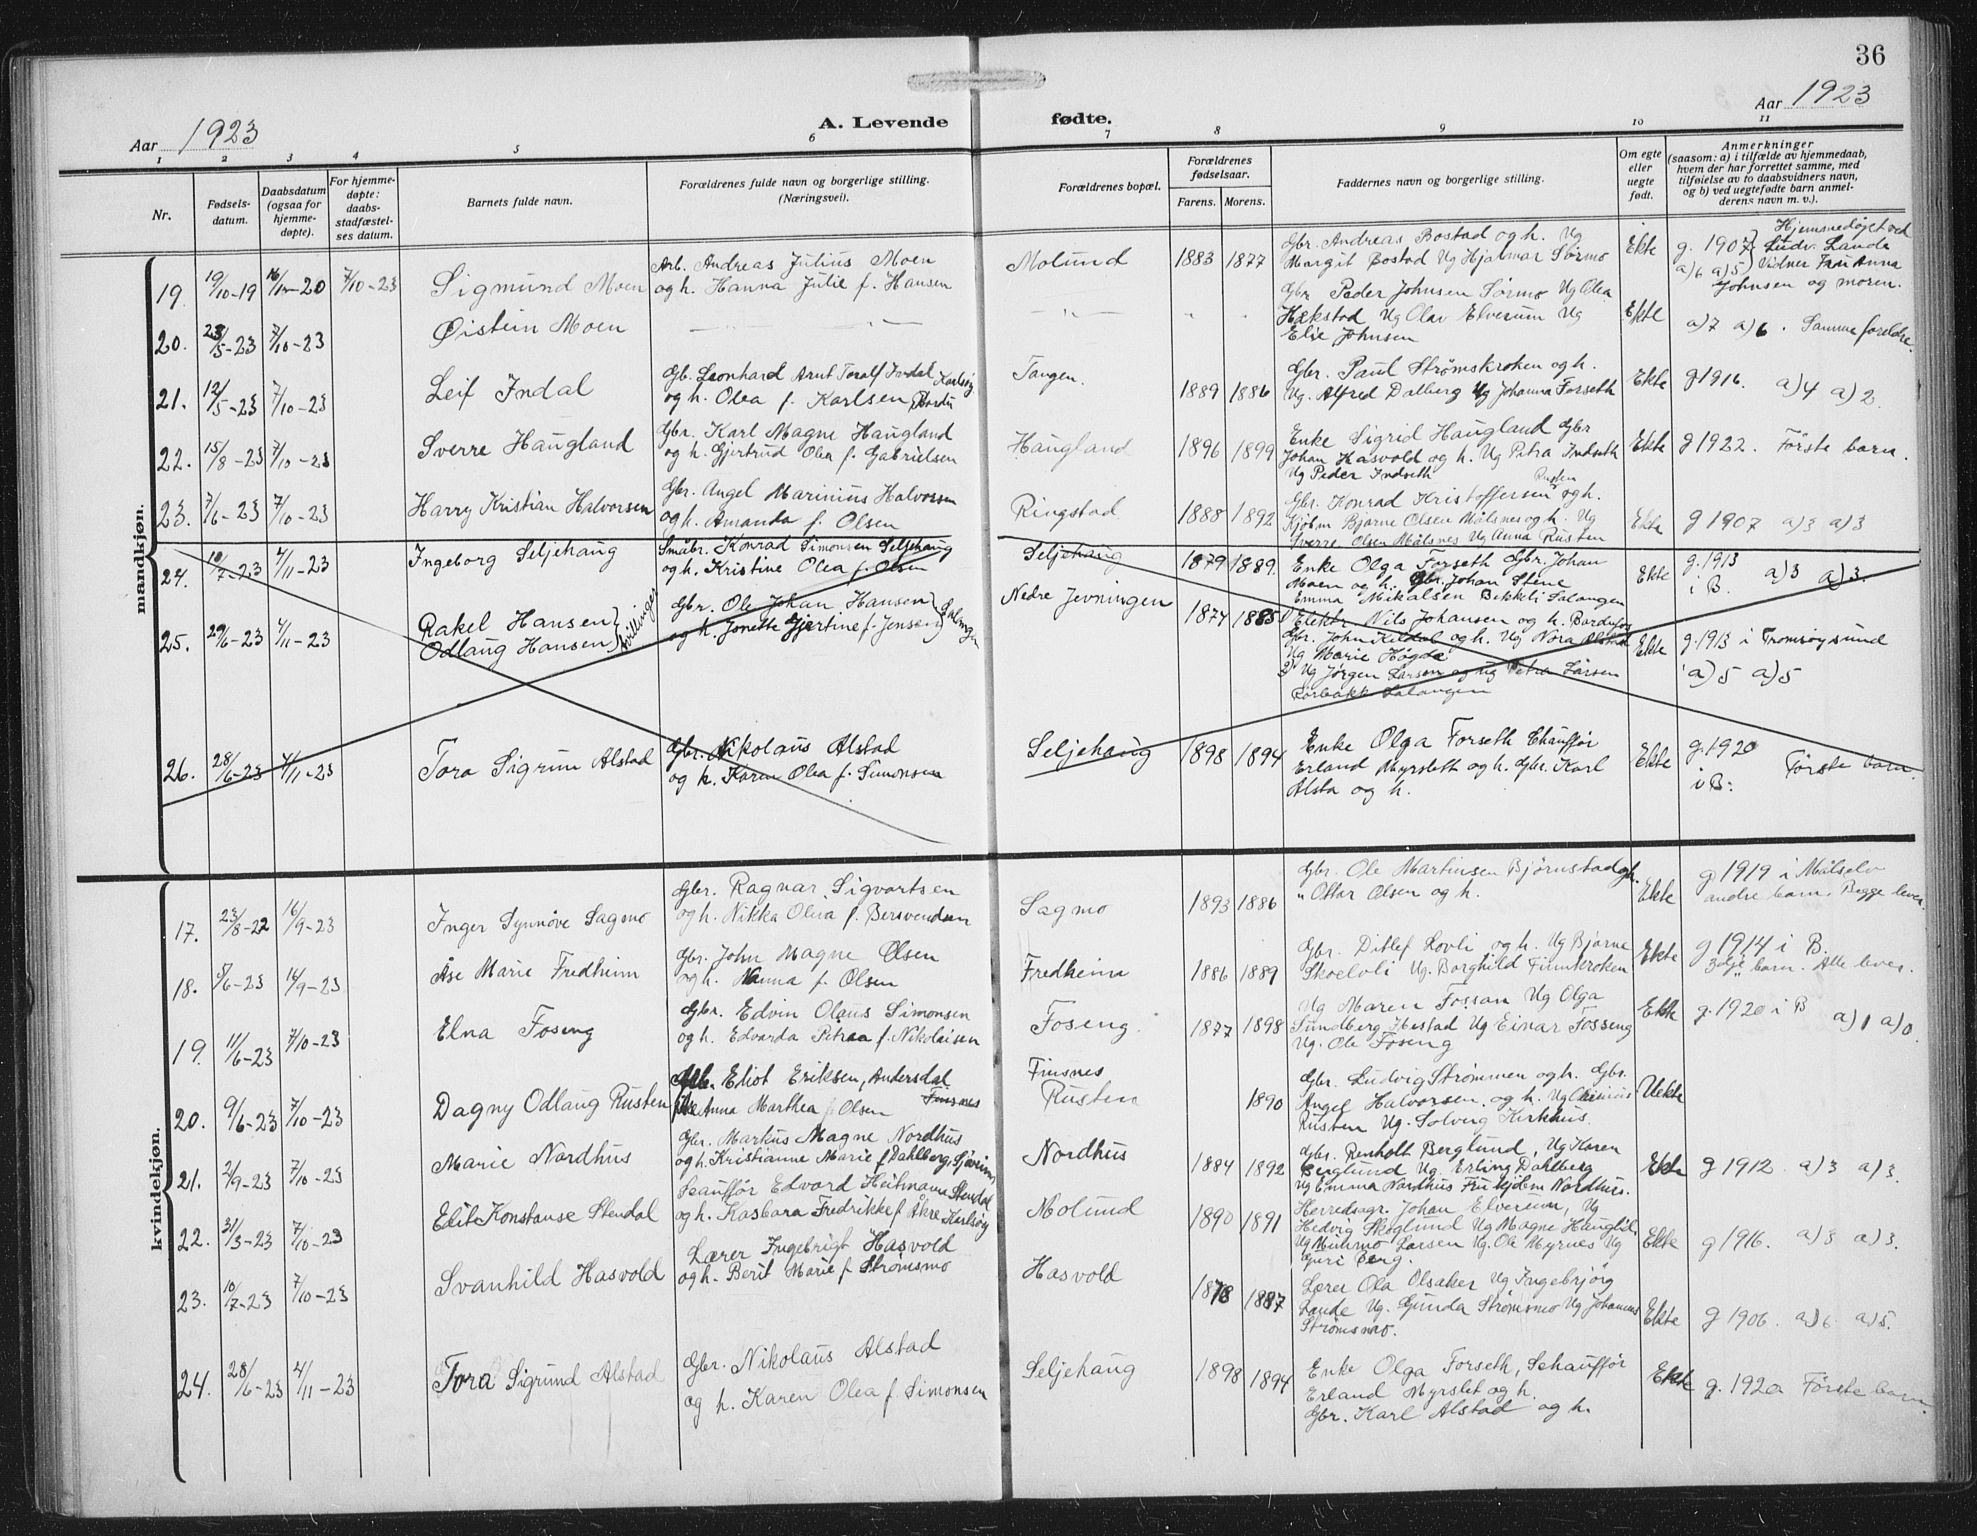 36
Aar 1923
A. Levende
fødte.
Aar 1923
1 2 3 4 5 6 7 8 9 10 11
Nr.
Fødsels-
datum.
Daabsdatum
(ogsaa for
hjemme-
døpte).
For hjemme-
døpte:
daabs-
stadfæstel-
ses datum.
Barnets fulde navn.
Forældrenes fulde navn og borgerlige stilling.
(Næringsvei).
Forældrenes bopæl.
Forældrenes
fødselsaar.
Farens. Morens.
Faddernes navn og borgerlige stilling.
Om egte
eller
uegte
født.
Anmerkninger
(saasom: a) i tilfælde av hjemmedaab,
hvem der har forrettet samme, med
tilføielse av to daabsvidners navn,
og b) ved uegtefødte barn anmel-
derens navn m. v.).
mandkjøn.
19. 19/10-19 7/10-23
Sigmund Moen
Arb. Andreas Julius Moen
og h. Hanna Julie f. Hansen
Molund
1883 1877
Gbr. Andreas Bostad og h. Ug
Margit Bostad Ug Hjalmar Sørmo
Ekte
g. 1907
a)6 a)5
Hjemmedøpt ved
Ludv. Lande
Vidner Fru Anna
Johnsen og moren.
20. 23/5-23 7/10-23
Øistein Moen
— " — " —
Gbr Peder Johnsen Sørmo Ug Olea
Hækstad Ug Olav Elverum Ug
Elise Johnsen
Ekte
a)7 a)6. Samme foreldre.
21. 12/5-23 7/10-23
Leif Indal
Gb. Leonhard Arnt Toralf Indal Karlsøy
og h. Olea f. Karlsen Bardu
Tangen.
1889 1886
Gbr. Paul Strømskroken og h.
Ug. Alfred Dalberg Ug Johanna Forseth
Ekte
g 1916. a)4 a)2
22. 15/8-23 7/10-23
Sverre Haugland
Gbr. Karl Magne Haugland
og h. Gjertrud Olea f. Gabrielsen
Haugland
1896 1899
Enke Sigrid Haugland Gbr
Johan Hasvold og h. Ug Petra Indseth
Ug Peder Indseth
Ekte
g 1922. Første barn.
23. 7/6-23 7/10-23
Harry Kristian Halvorsen
Gbr. Angel Marinius Halvorsen
og h. Amanda f. Olsen
Ringstad
1888 1892
Rusten
Gbr. Konrad Kristoffersen og h.
Kjøbm Bjarne Olsen Målsnes og h. Ug
Sverre Olsen Målsnes Ug Anna Rusten
Ekte
g 1907 a)3 a)3
24. 10/7-23 4/11-23
Ingeborg Seljehaug
Småbr. Konrad Simonsen Seljehaug
og h. Kristine Olea f. Olsen
Seljehaug
1879 1889.
Enke Olga Forseth Gbr. Johan
Moen og h. Gbr. Johan Stene
Emma Mikalsen Bekkeli Salangen
Ekte
g. 1913
i B.
a)3 a)3.
25. 29/6-23 4/11-23
Rakel Hansen
Odlaug Hansen
tvillinger
Gbr. Ole Johan Hansen
og h. Jonette Gjertine f. Jensen
Salangen
Nedre Jevningen
1874 1885
Elektr. Nils Johansen og h. Bardufos
Gbr. John Kildal og h. Ug Nora Alstad
Ug Marie Høgda
2) Ug Jørgen Larsen og ug Petra Larsen
Rorbakk Salangen
Ekte
g. 1913 i Tromsøysund
a)5 a)5
26. 28/6-23 4/11-23
Tora Sigrun Alstad
Gbr. Nikolaus Alstad
og h. Karen Olea f. Simonsen
Seljehaug
1898 1894
Enke Olga Forseth Chauffør
Erland Myrsleth og h. Gbr. Karl
Alsta og h.
Ekte
g. 1920
i B:
Første barn.
kvindekjøn.
17. 23/8-22 16/9-23
Inger Synnøve Sagmo
Gbr. Ragnar Sigvartsen
og h. Nikka Olea f. Bersvendsen
Sagmo
1893 1886
Gbr. Ole Martinsen Bjørnstad og h.
" Ottar Olsen og h.
Ekte
g 1919 i Målselv
andre barn. Begge lever.
18. 5/6-23 16/9-23
Åse Marie Fredheim
Gbr. John Magne Olsen
og h. Nanna f. Olsen
Fredheim
1886 1889
Gbr. Ditlef Lovli og h. Ug Bjarne
Skoelvli Ug. Borghild Finnkroken
Ekte
g 1914 i B.
3dje barn. Alle lever.
19. 11/6-23 7/10-23
Elna Foseng
Gbr. Edvin Olaus Simonsen
og h. Edvarda Petraa f. Nikolaisen
Foseng.
1877 1898
Ug Maren Fossan Ug Olga
Sundberg Ug Einar Fosseng
Ug. Ole Foseng
Ekte
g. 1920 i B a)1 a)0
20. 9/6-23 7/10-23
Dagny Odlaug Rusten
Arb. Eliot Eriksen, Andersdal
Anna Marthea f Olsen Finsnes
Finsnes
Rusten
1890
Gbr. Ludvig Strømmen og h. Gbr.
Angel Halvorsen og h. Ug
Rusten Ug. Solveig Kirkhus.
Uekte
21. 2/9-23 7/10-23
Marie Nordhus
Gbr. Markus Magne Nordhus
og h. Kristianne Marie f Dahlberg, Sjøveien
Nordhus
1884 1892
Gbr. Renholt Berglund, Ug Karen
Berglund Ug. Erling Dahlberg
Ug Emma Nordhus Fru kjøbm Nordhus.
Ekte
g 1912. a)3 a)3.
22. 31/3-23 7/10-23
Elit Konstanse Stendal
Schauffør Edvard Heitmann Stendal
og h. Kasbara Fredrikke f Åkre Karlsøy
Molund
1890 1891
Herredsagr. Johan Elverum, Ug
Hedvig Skoglund Ug Magne Haugli
Ug Larsen Ug. Ole Myrnes Ug
Guri Berg.
Ekte
g 1916. a)3 a)3.
23. 10/7-23 7/10-23
Svanhild Hasvold
Lærer Ingebrigt Hasvold
og h. Berit Marie f Strømsmo
Hasvold
1878 1887
Lærer Ola Olsaker Ug Ingebrjørg
Lande Ug. Gunda Strømsmo Ug Johannes
Strømsmo.
Ekte
g 1906. a)6 a)5.
24. 28/6-23 4/11-23
Tora Sigrund Alstad
Gbr. Nikolaus Alstad
og h. Karen Olea f. Simonsen
Seljehaug
1898 1894
Enke Olga Forseth, Schauffør
Erland Myrslet og h.
Gbr. Karl Alstad og h.
Ekte
g. 1920 Første barn.